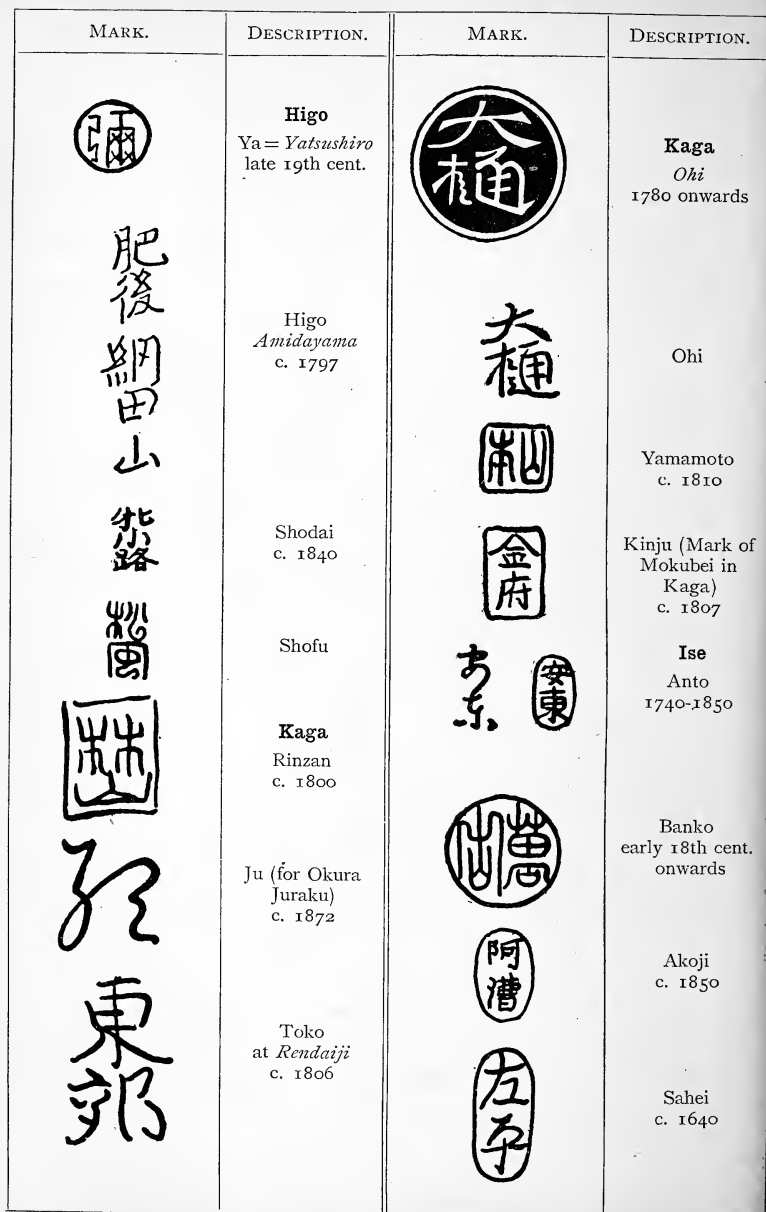 MARK.
DESCRIPTION.
MARK.
DESCRIPTION.
彌
Higo
Ya = Yatsushiro
late 19th cent.
肥後網田山
Higo
Amidayama
c. 1797
Shodai
c. 1840
松風
Shofu
林山
Kaga
Rinzan
c. 1800
Ju (for Okura
Juraku)
c. 1872
東郊
Toko
at Rendaiji
c. 1806
大樋
Kaga
Ohi
1780 onwards
大樋
Ohi
山本
Yamamoto
c. 1810
金府
Kinju (Mark of
Mokubei in
Kaga)
c. 1807
安東
安東
Ise
Anto
1740-1850
萬
Banko
early 18th cent.
onwards
阿漕
Akoji
c. 1850
左平
Sahei
c. 1640